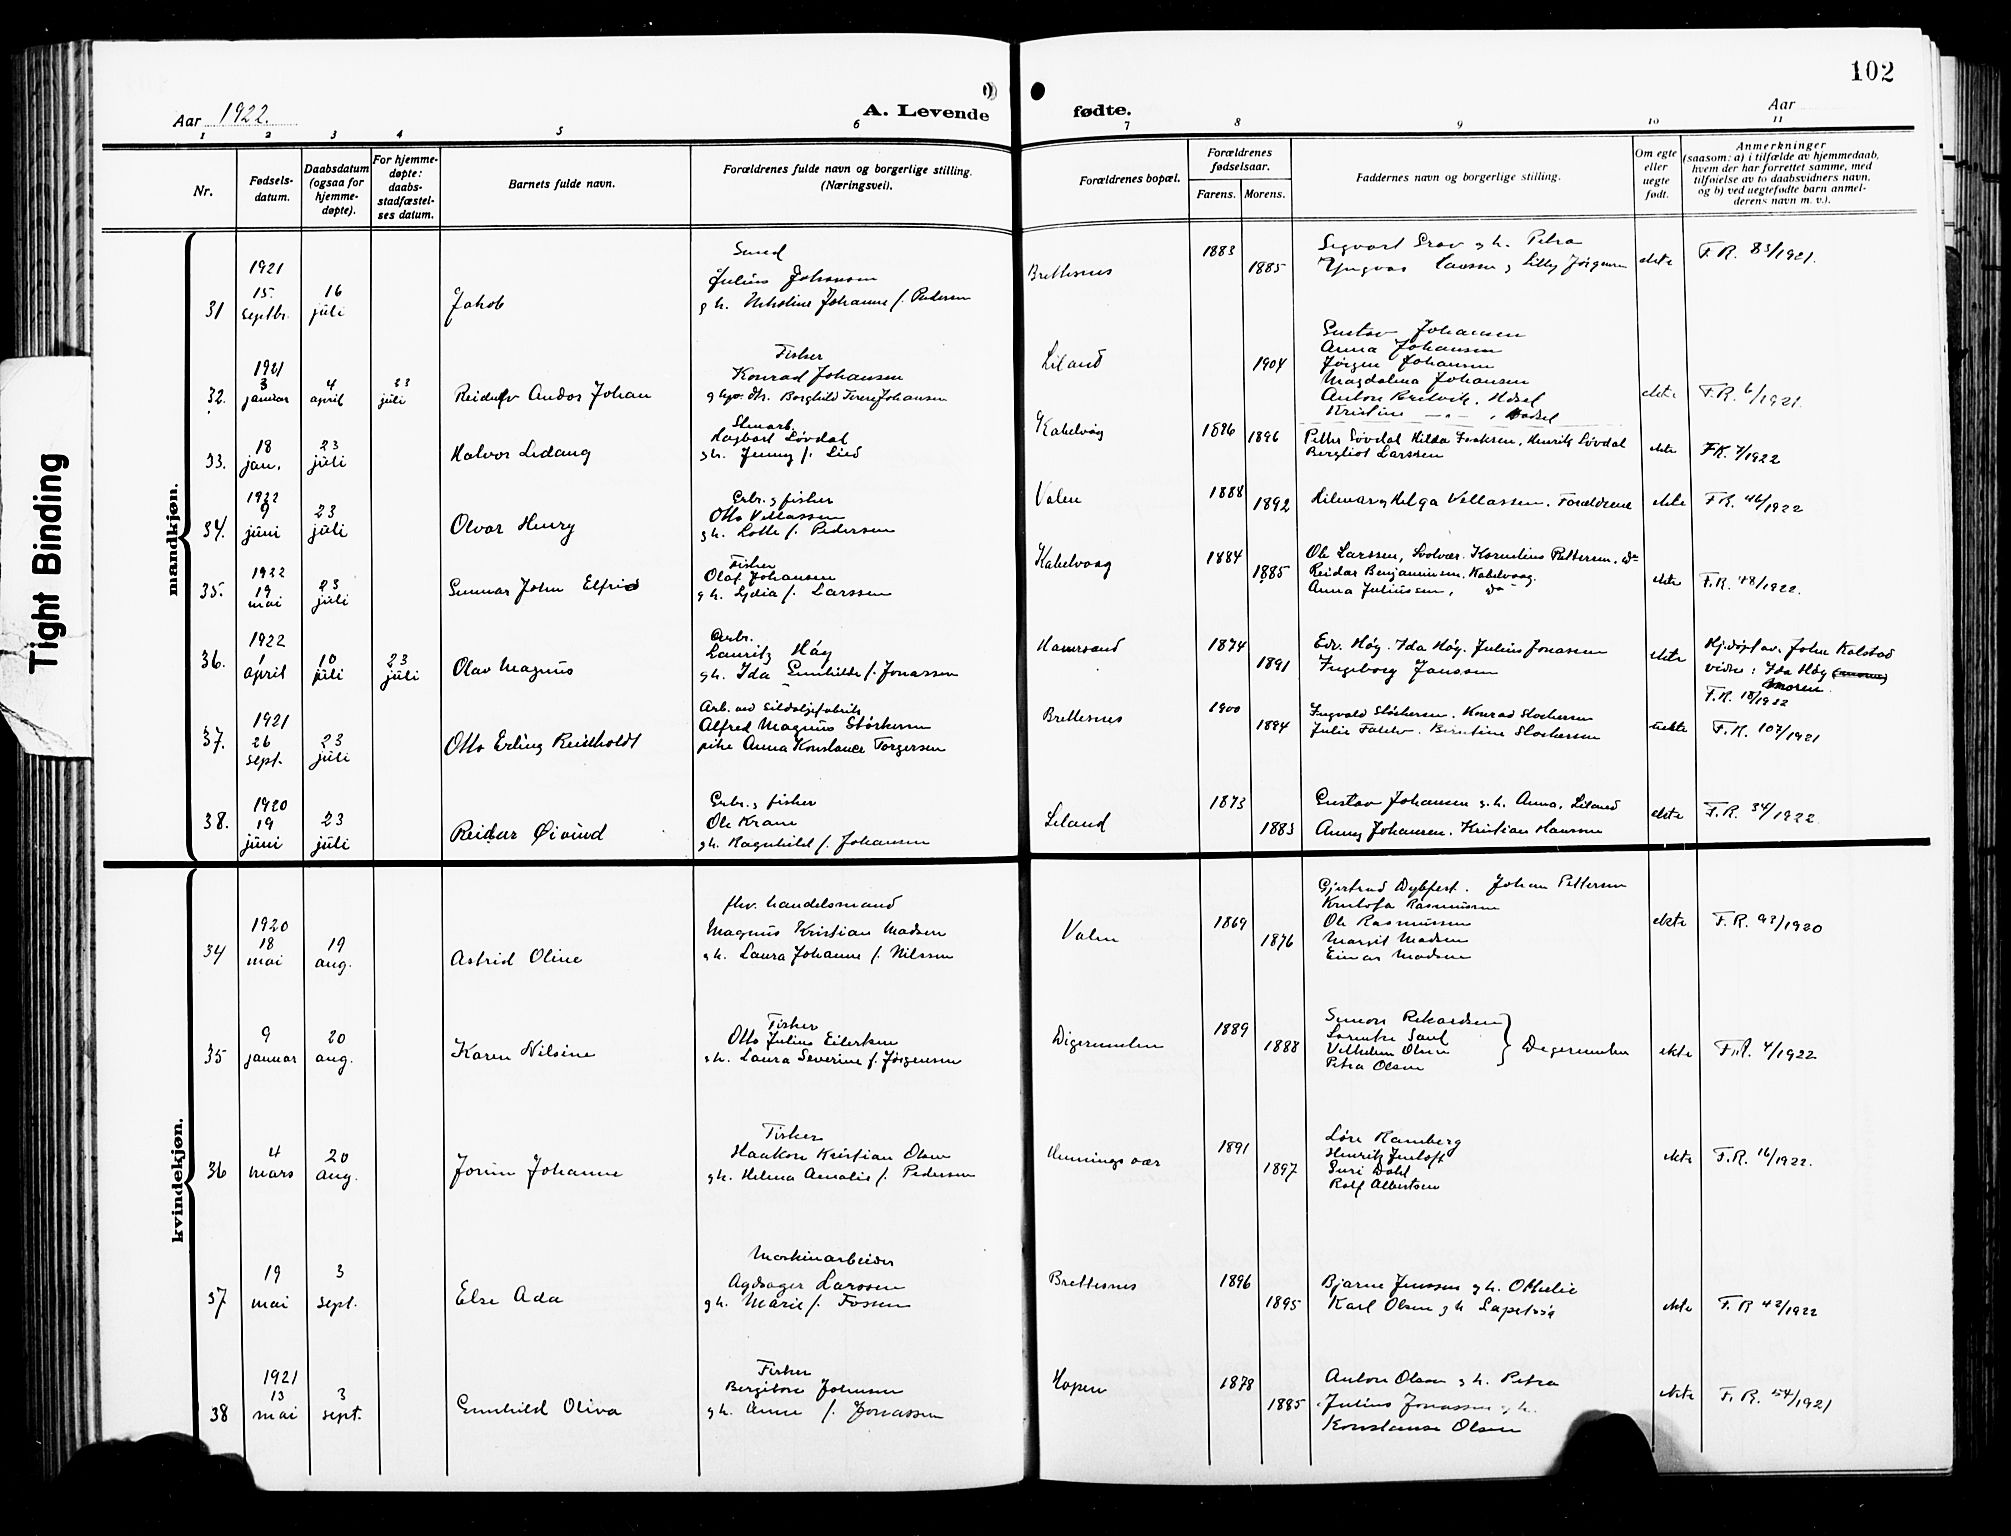 102
Aar 1922.
A. Levende
fødte.
Aar
1 2 3 4 5 6 7 8 9 10 11
Nr.
Fødsels-
datum.
Daabsdatum
(ogsaa for
hjemme-
døpte).
For hjemme-
døpte:
daabs-
stadfæstel-
ses datum.
Barnets fulde navn.
Forældrenes fulde navn og borgerlige stilling.
(Næringsveil.)
Forældrenes bopæl.
Forældrenes
fødselsaar.
Farens. Morens.
Faddernes navn og borgerlige stilling.
Om egte
eller
uegte
født.
Anmerkninger
(saasom: a) i tilfælde av hjemmedaab,
hvem der har forrettet samme, med
tilføielse av to daabsvidners navn,
og b) ved uegtefødte barn anmel-
derens navn m. v.).
Tight Binding
mandkjøn.
31
1921
15.
septbr.
16
juli
Jakob
Smed
Julius Johansen
g h. Nikoline Johanne f. Pedersen
Brettesnes
1883
1885
Sigvart g h. Petra
Yngvar Hansen g Lilly Jørgensen
ekte
F.R. 83/1921.
32.
1921
3
januar
4
april
23
juli
Reidulv Andor Johan
Fisker
Konrad Johansen
Borghild Johansen
Liland
1904
Gustav Johansen
Anna Johansen
Jørgen Johansen
Magdalena Johansen
Anton Hadsel
Kristine — „ — , Hadsel
ekte
F.R. 6/1921.
33.
18
jan.
23
juli
Halvor Lidang
Stenarb.
Hagbart Løvdal
g h. Jenny f. Lied
Kabelvåg
1896
1896
Petter Løvdal Hilda Isaksen, Henrik Løvdal
Bergliot Larssen
ekte
F.R. 7/1922
34.
1922
9
juni
23
juli
Olvar Henry
Grbr. g fisker
Otto Vellassen
g h. Lotte f. Pedersen
Valen
1888
1892
Hilmar g Helga Vellassen. Forældrene
ekte
F.R. 46/1922
35.
1922
19
mai
23
juli
Gunnar John Elfrid
Fisker
Olaf Johansen
g h. Lydia f. Larssen
Kabelvaag
1884
1885
Ole Larssen, Svolvær. Kornelius Pettersen, do
Reidar Benjaminsen, Kabelvaag.
Anna Juliussen, do
ekte
F.R. 48/1922.
36.
1922
1
april
10
juli
23
juli
Olav Magnus
Arb.
Lauritz Høg
g h. Ida Gunhilde f. Jonassen
Hamrsand
1874
1891
Edv. Høg. Ida Høg. Julius Jonassen
Ingeborg Janssen
ekte
Hj.døpt av John Kalstad
vidn: Ida Høg
moren.
F.R. 18/1922
37.
1921
26
sept.
23
juli
Otto Erling Reinholdt
Arb. ved Sildoljefabrik
Alfred Magnus Storkersen
pike Anna Konstance Torgersen
Brettesnes
1900
1894
Ingvald Storkersen. Konrad Storkersen
Julie Falch. Berntine Storkersen
uekte
F.R. 107/1921
38.
1920
19
juni
23
juli
Reidar Øivind
Grbr. g fisker
Ole Krane
g h. Ragnhild f. Johansen
Liland
1873
1883
Gustav Johansen g. h. Anna, Liland
Anny Johansen. Kristian Hanssen
ekte
F.R. 34/1922.
kvindekjøn.
34
1920
18
mai
19
aug.
Astrid Oline
fhv. handelsmand
Magnus Kristian Madsen
g h. Laura Johanne f. Nilssen
Valen
1869
1876
Gjertrud Dybfest. Johan Pettersen
Kristofa Rasmussen
Ole Rasmussen
Margit Madsen
Einar Madsen
ekte
F.R. 93/1920
35
9
januar
20
aug.
Karen Nilsine
Fisker
Otto Julius Eilertsen
g h. Laura Severine f. Jørgensen
Digermulen
1889
1888
Simon Rikardsen
Vilhelm Olsen
Petra Olsen
Digermulen
ekte
F.R. 4/1922
36
4
mars
20
aug.
Jorun Johanne
Fisker
Haakon Kristian Olsen
g h. Helma Amalie f. Pedersen
Henningsvær
1891
1897
Løre Ramberg
Henrik Jentoft
Guri Dahl
Rolf Albertsen
ekte
F.R. 16/1922.
37
19
mai
3
sept.
Else Ada
Maskinarbeider
Agdsager Larssen
g h. Marie f. Fossen
Brettesnes
1896
1895
Bjarne Jenssen g h. Othelie
Karl Olsen g h
ekte
F.R 42/1922
38
1921
13
mai
3
sept.
Gunhild Oliva
Fisker
Bergiton Johnsen
g h. Anne f. Jonassen
Hopen
1878
1885
Anton Olsen g h. Petra
Julius Jonassen g h.
Konstanse Olsen
ekte
F.R. 54/1921